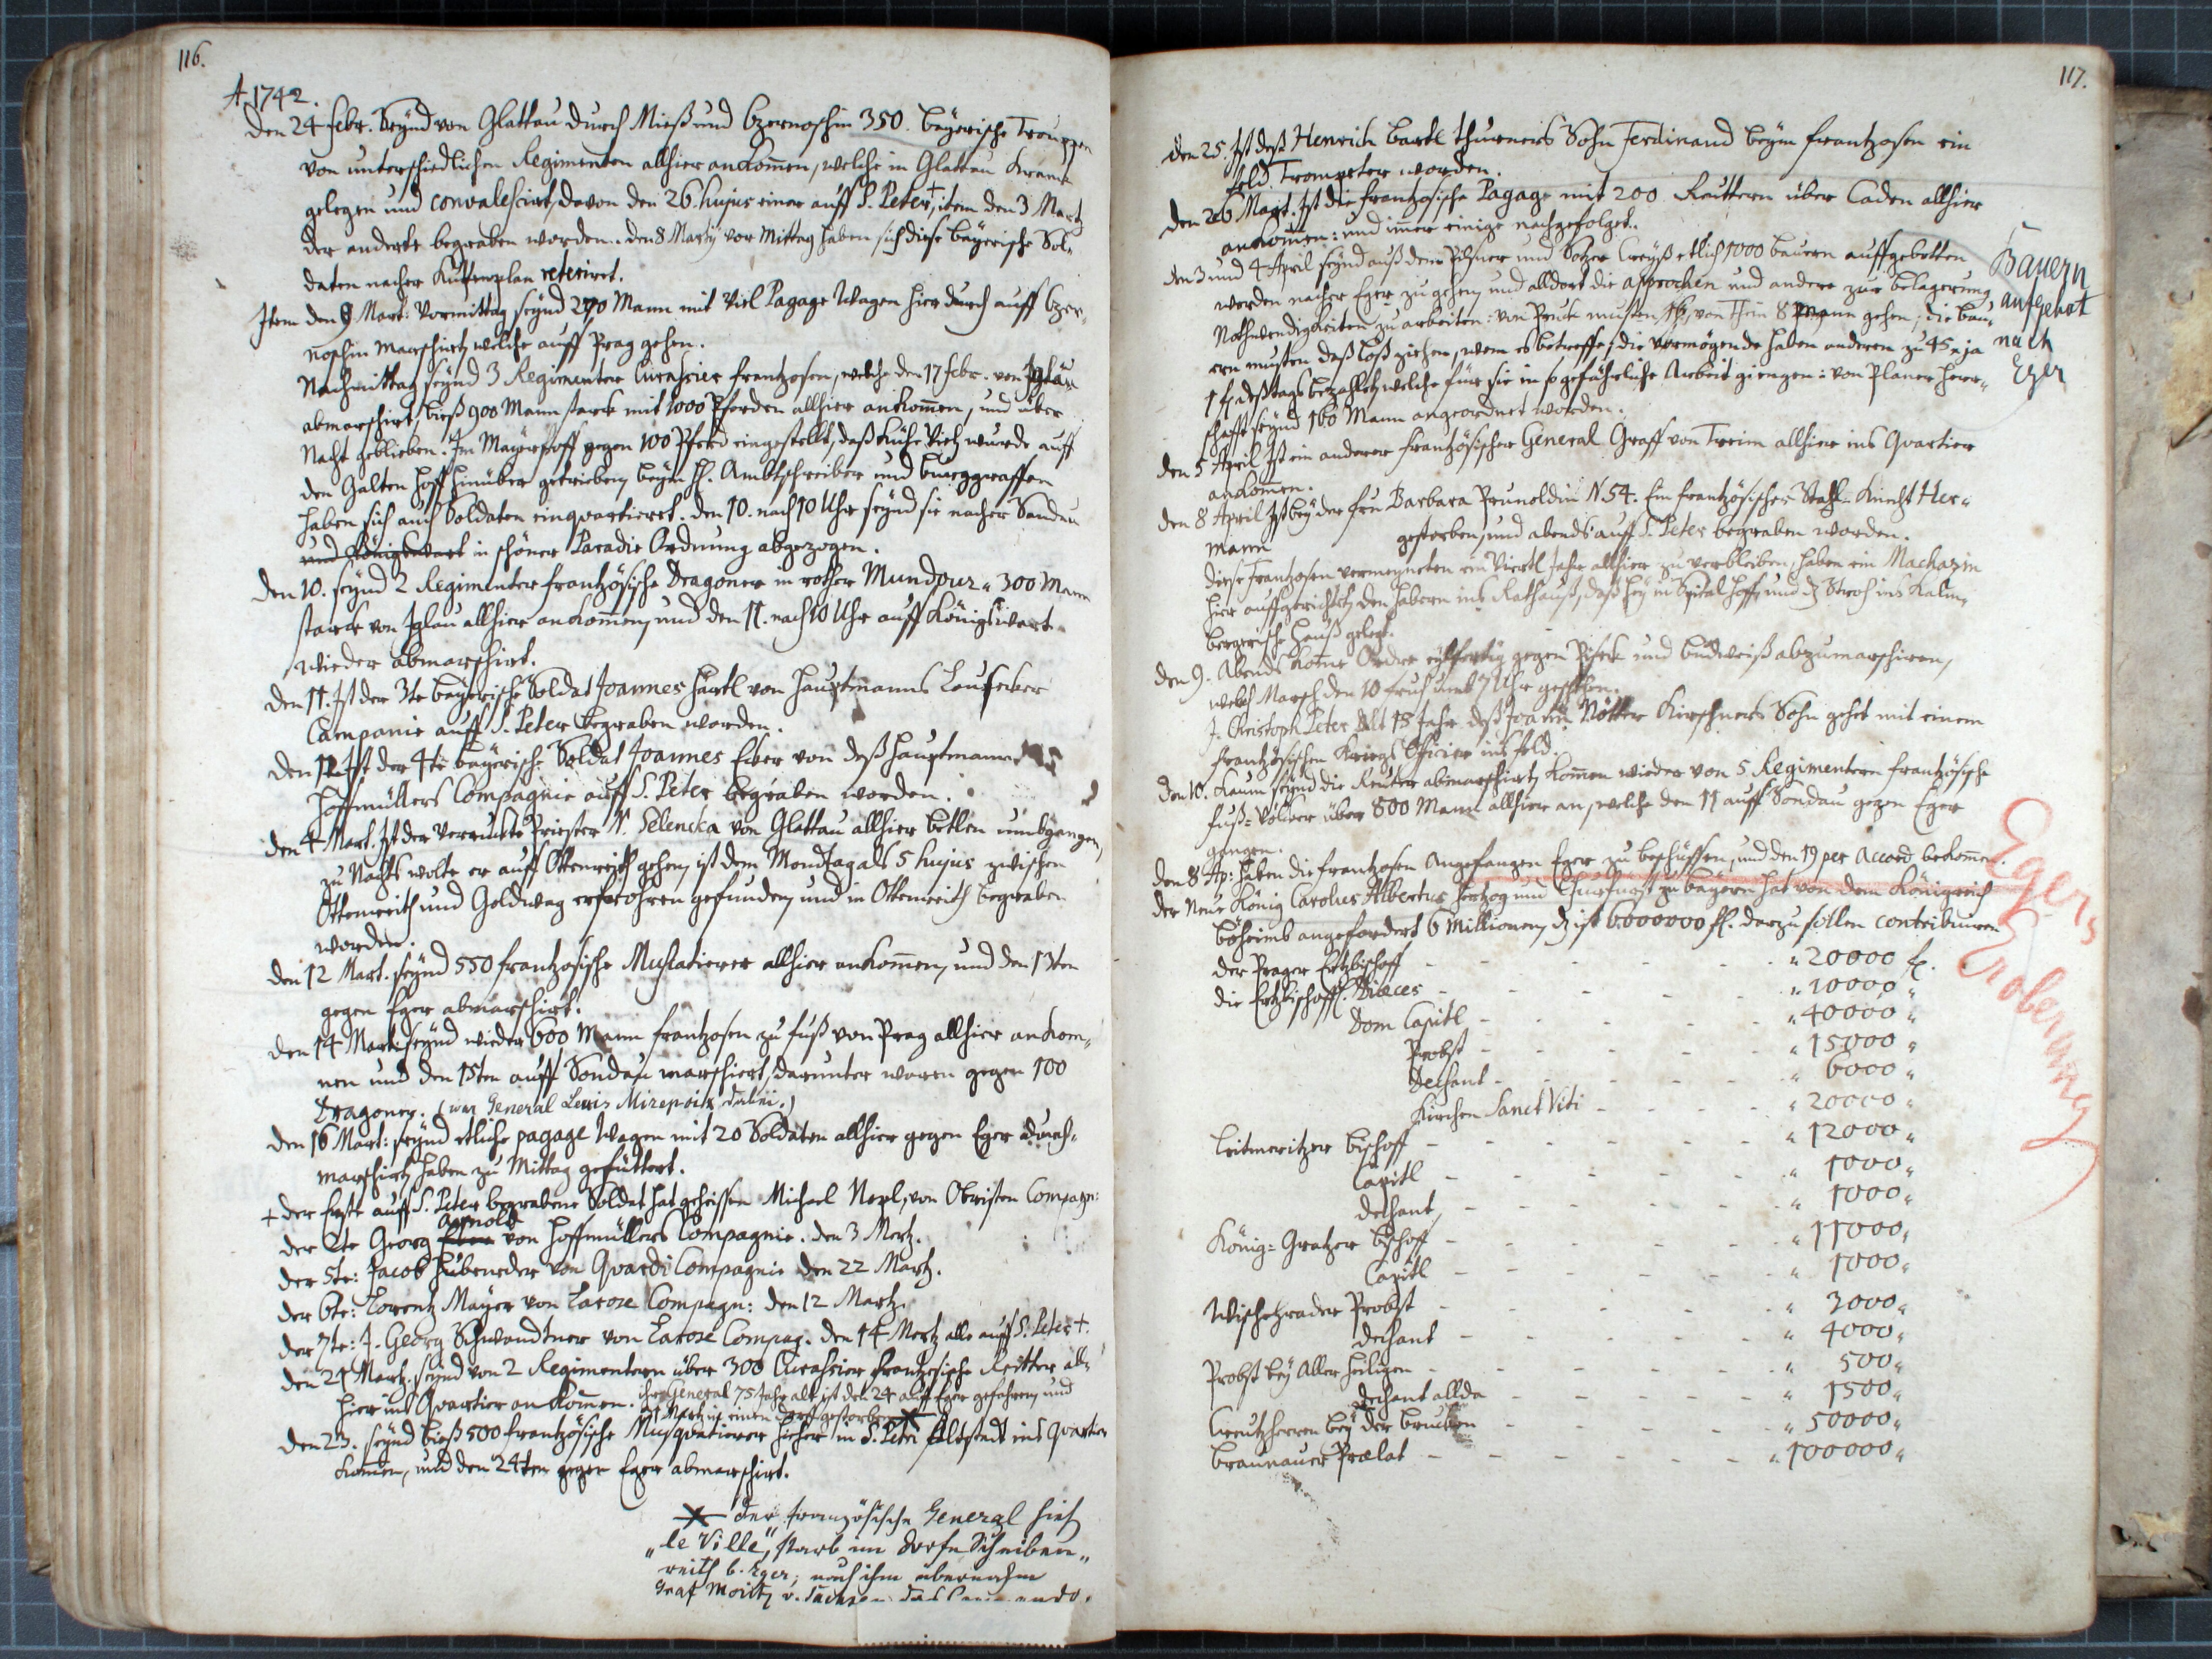 116.
A. 1742.
Den 24 febr. Seynd von Glattau durch Mieß und Czernoschin 350. bayerische Trouppen
von unterschiedlichen Regimenten allhier ankom̄en, welche in Glattau Kranck
gelegen und convalescirt, davon den 26. hujus einer auff S. Peter †, item den 3 Martz
der anderte begraben worden. den 8 Martij vor Mittag haben sich diese bayerische Sol-
daten nacher Kuttenplan reterirt.
Item den 9. Mart: Vormittag seynd 270 Mann mit viel Pagage Wagen hier durch auff Czer-
noschin marschirt, welche auff Prag gehen.
Nachmittag seynd 3 Regimenter Curassier frantzosen, welche den 17 febr. von Iglau
abmarschirt, bieß 900 Mann starck mit 1000 Pferden allhier ankom̄en, und über
Nacht geblieben. Im Mayerhoff gegen 100 Pferd eingestellt, daß Kühe Vieh wurde auff
den Galten Hoff hinüber getrieben, beym H. Ambtschreiber und burggraffen
haben sich auch Soldaten einquartieret. den 10. nach 10 Uhr seynd sie nacher Sandau
und Königswart in schöner Paradie Ordnung abgezogen.
Den 10. seynd 2 Regimenter frantzösische Dragoner in rother Mundour 300 Mann
starck von Iglau allhier ankom̄en, und den 11. nach 10 Uhr auff Königswart
wieder abmarschirt.
Den 11. Ist der 3te bayerische Soldat Joannes Hartl von Hauptmanns
Campanie auff S. Peter begraben worden.
Den 12. Ist der 4te bayerische Soldat Joannes Eder von deß Hauptmann
Hoffmüllers Compagnie auff S. Peter begraben worden.
Den 4 Mart. Ist der verruckte Priester N. Selencka von Glattau allhier betlen umbgangen,
zu Nachts wolte er auff Ottenreith gehen, ist dem Mondtag als 5 hujus zwischen
Ottenreith und Goldwag erfrohren gefunden, und in Ottenreith begraben
worden.
Den 12 Mart. seynd 550 frantzosische Musqatierer allhier ankom̄en, und den 13ten
gegen Eger abmarschirt.
Den 14 Marti seynd wieder 600 Mann frantzosen zu fuß von Prag allhier ankom-
men und den 15ten auff Sondau marschiert, darunter waren gegen 100
Dragoner. (war General Lewis Mirepoix dabei.)
Den 16 Mart: seynd etliche pagage Wagen mit 20 Soldaten allhier gegen Eger durch-
marschirt, haben zu Mittag gefüttert.
+ der Erste auff S. Peter begrabene Soldat hat geheissen Michael Negl, von Obristen Compagn:
der 2te Georg Arnold von Hoffmüllers Compagnie. den 3 Mertz.
der 5te: Jacob Hubeneder von Quardi Compagnie den 22 Martz.
der 6te: Lorentz Mayer von Larose Compagn: den 12 Martz.
der 7te: J. Georg Schwandtner von Larose Compag. den 14 Mertz alle auff S. Peter †.
Den 21 Martz. seynd von 2 Regimentern über 300 Curassier frantzösische Reitter all-
hier ins Quartier ankom̄en. ihr General 75 Jahr alt ist den 24 auff Eger gefahren, und
Martz in einen dorff gestorben
Den 23. seynd bieß 500 frantzösische Musquatierer hieher in S. Peter Altstadt ins Quartier
kom̄en, und den 24ten gegen Eger abmarschirt.
der französische General hieß
„le Ville“, starb im Dorfe Scheiben-
reith b. Eger; nach ihm übernahm
Graf Moritz v. Sachsen das Commando.
117.
Den 25. Ist deß Henrich Bartl thurners Sohn Ferdinand beym frantzosen ein
feld Trompeter worden.
Den 26 Mart. Ist die frantzosische Pagage mit 200 Reuttern über Caden allhier
ankom̄en: und im̄er einige nachgefolget.
Den 3 und 4 April seynd auß dem Pilsner und Satzer Creyß etlich 1000 bauern auffgebotten
worden nacher Eger zu gehen, und alldort die aprochen und andere zur belagerung
Nothwendigkeiten zu arbeiten: von Pruck musten 16, von Thein 8 Mann gehen, die bau-
ern musten daß loß ziehen, wem es betreffe, die vermögende haben anderen zu 45 x ja
1 fl deß tags bezahlet, welche für sie in so gefährliche Arbeit giengen: von Planer Herr-
schafft seynd 160 Mann angeordnet worden.
Bauern
aufgebot
nach
Eger
Den 5 April Ist ein anderer frantzösischer General Graff von Treim allhier ins Quartier
ankom̄en.
Den 8 April Ist bey der fru Barbara Prunoldin N. 54. Ein frantzösischer Stahl-Knecht Her-
mann gestorben, und abends auff S. Peter begraben worden.
Diese Frantzosen vermeyneten ein Viertl Jahr allhier zu verbleiben, haben ein Machazin
hier auffgerichtet, den habern ins Rathauß, daß hey in Spital Hoff, und dz Stroh ins Kalm-
bergerische Hauß gelegt.
Den 9. Abends kom̄e Ordre eylfertig gegen Pisek und budweiß abzumarschiren,
welch Marsch den 10 fruh umb 7 Uhr geschehen.
J. Christoph Peter Alt 15 Jahr deß Joann Nötter Kirschners Sohn gehet mit einem
frantzösischen Kriegs Officier ins feld.
Den 10. Kaum seynd die Reuter abmarschirt, kom̄en wieder von 5 Regimentern frantzösische
fuß-Völcker über 800 Mann allhier an, welche den 11 auff Sondau gegen Eger
gangen.
Den 8 Ap: haben die frantzosen angefangen Eger zu beschüssen, und den 19 per Accord bekom̄en.
Der Neue König Carolus Albertus Hertzog und Churfürst zu bayern hat von dem Königreich
böheimb angefordert 6 Millionen, dz ist 6.000000 fl. darzu sollen contribuiren
Egers
Eroberung
Der Prager Ertzbischoff - - - „20000 fl.
Die Ertzbischoffl. Diœces - - - „10000„
Dom Capitl - - - „40000„
Probst - - - „15000„
Dechant - - - „6000„
Kirchen Sanct Viti - - - „20000„
Leitmeritzer bischoff - - - „12000„
Capitl - - - „1000„
dechant - - - „1000„
König-Gratzer bischoff - - - „11000„
Capitl - - - „1000„
Wischehrader Probst - - - „3000„
dechant - - - „4000„
Probst bey Aller Heiligen - - - „500„
dechant allda - - - „1500„
Creutzherren bey der brucken - - - „50000„
Braunauer Prælat - - - „100000„